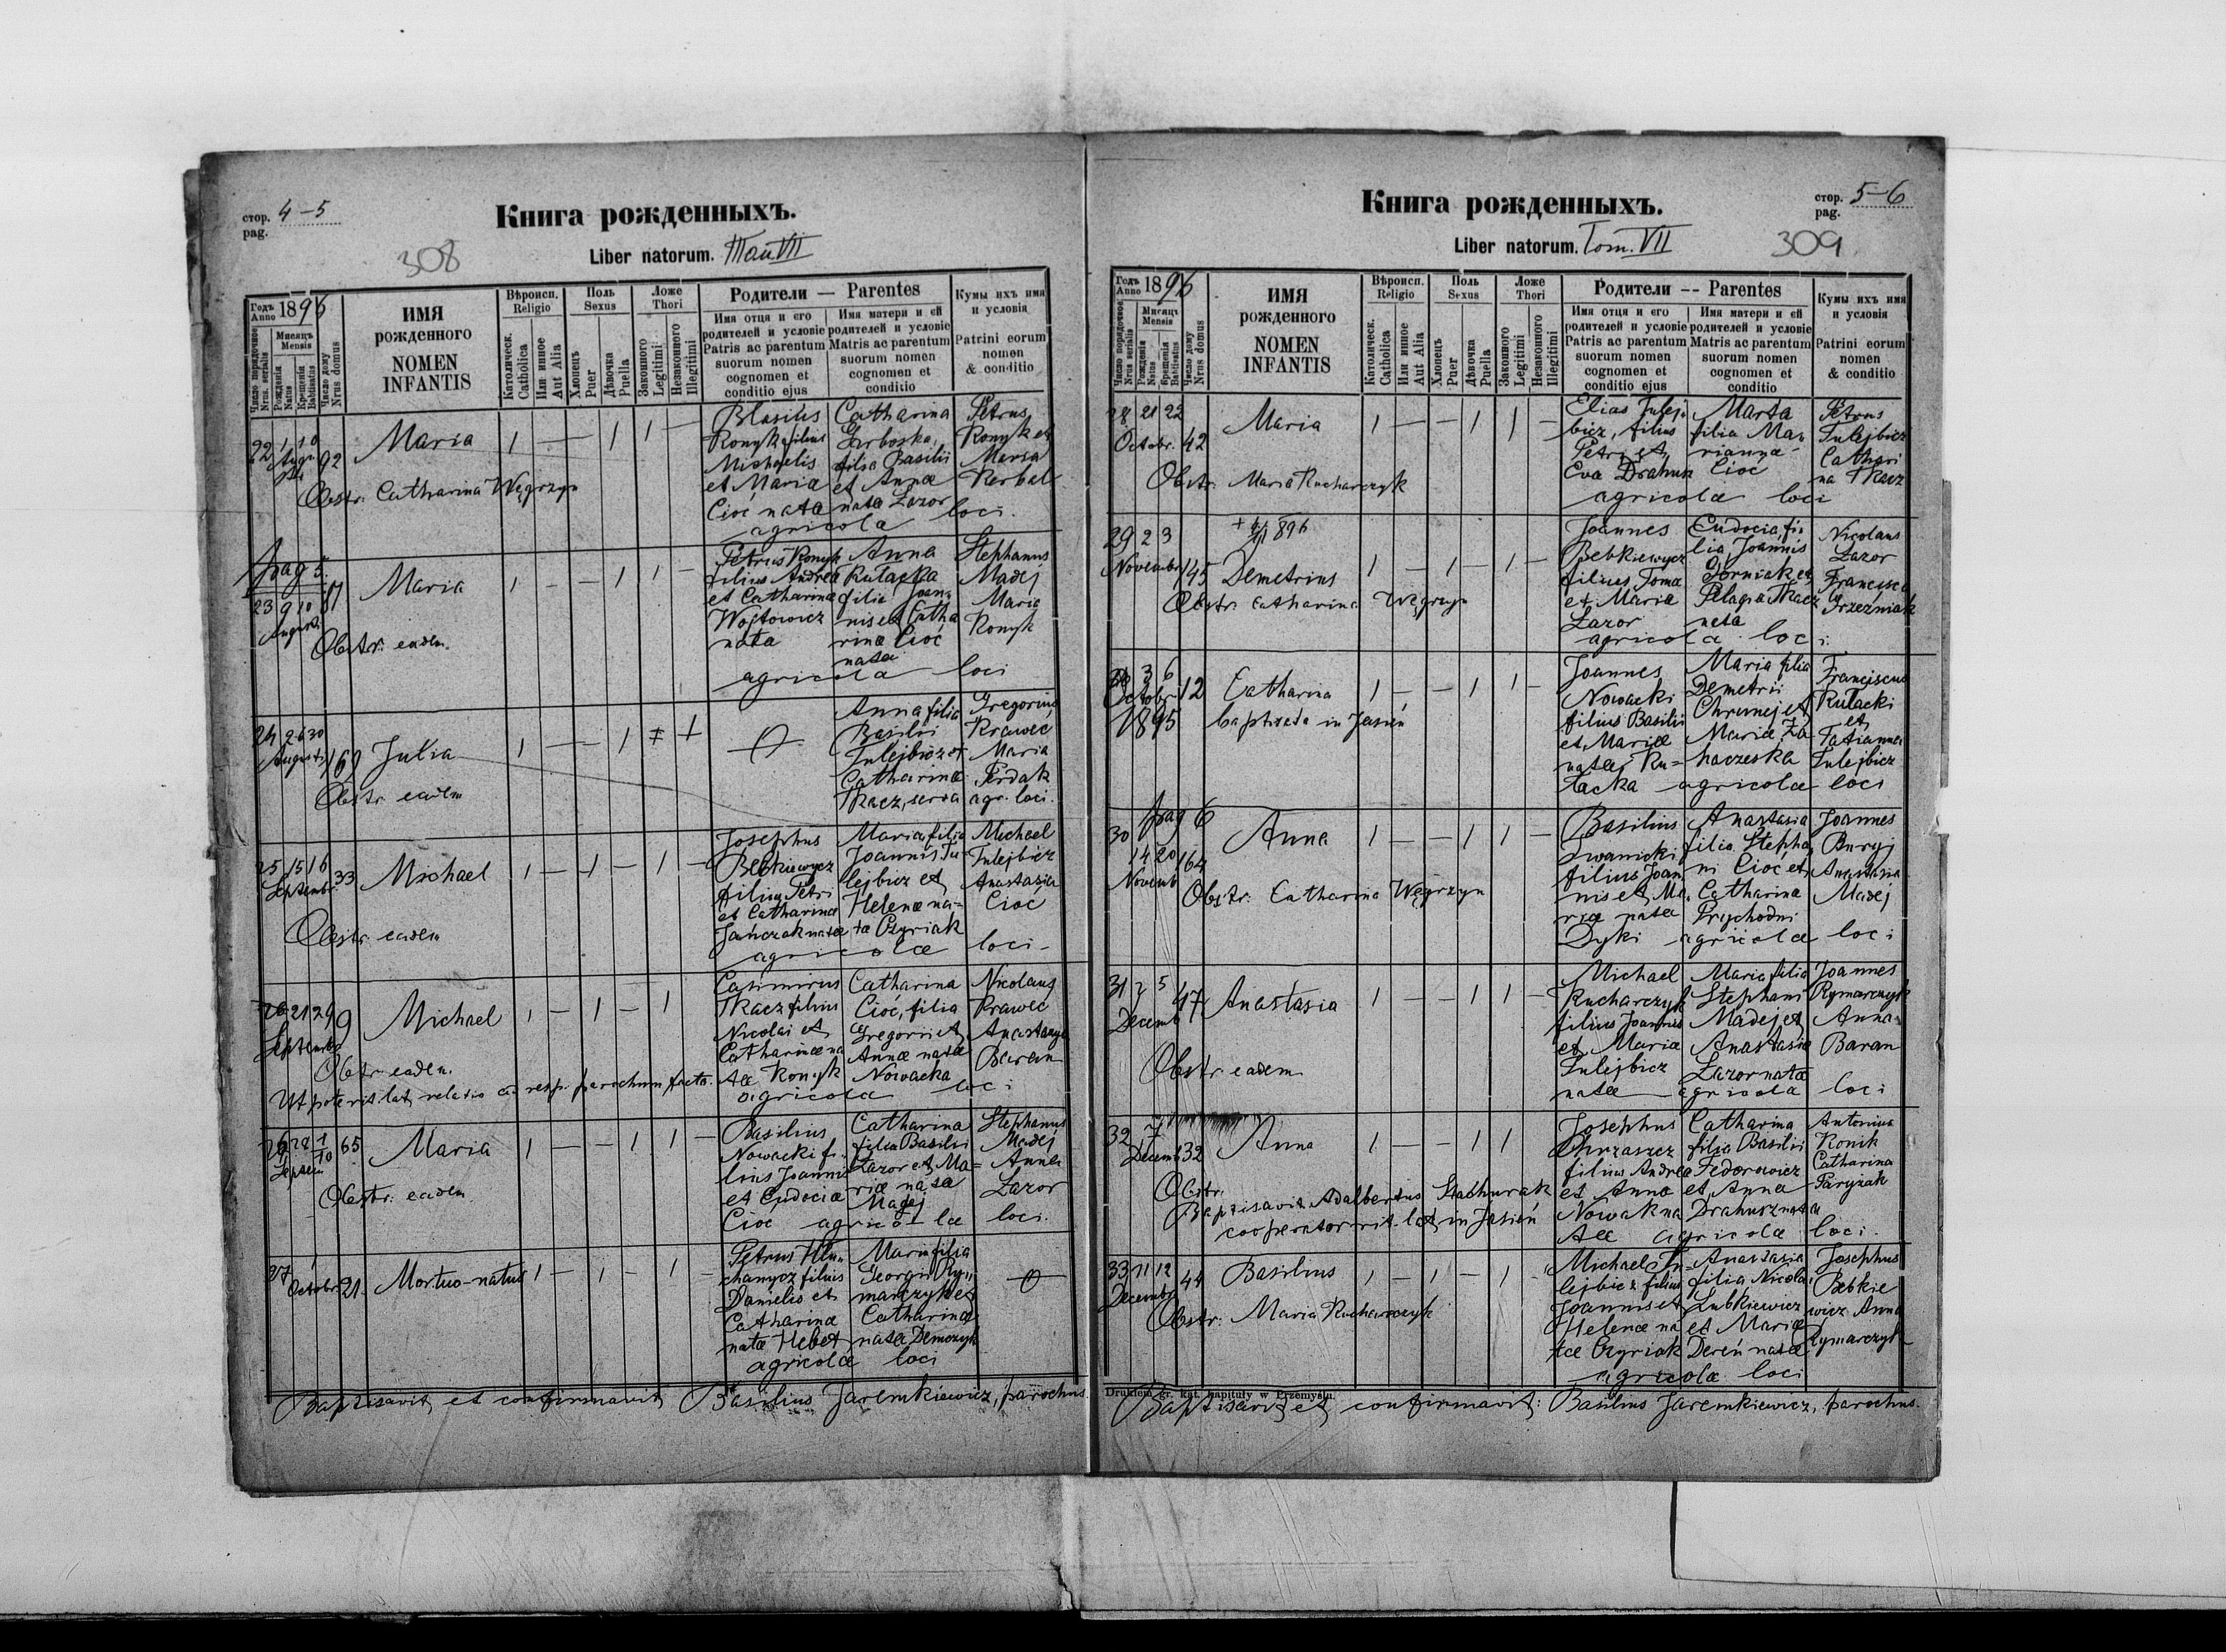 стор. 4-5
pag.
Книга рожденныхъ.
308
Liber natorum. Том VII
Годъ Anno 1896
Число порядочное Nrus serialis
Мисяцъ Mensis
Рожденія Natus
Крещенія Batisatus
Число дому Nrus domus
ИМЯ рожденного NOMEN INFANTIS
Вѣроисп. Religio
Католическ. Catholica
Или инное Aut Alia
Поль Sexus
Хлопецъ Puer
Дѣвочка Puella
Ложе Thori
Законного Legitimi
Незаконного Illegitimi
Родители — Parentes
Имя отця и его родителей и условіе Patris ac parentum suorum nomen cognomen et conditio ejus
Имя матери и ей родителей и условіе Matris ac parentum suorum nomen cognomen et conditio
Кумы ихъ имя и условія Patrini eorum nomen & conditio
22 1 10 Augusti 92 Maria 1 — — 1 1 —
Blasius Konyk filius Michaelis et Maria Cioć nata
Catharina Gerboska, filia Basilii et Anna nata Łazor
Petrus Konyk et Maria Kerbel
agricola loci.
Obstr. Catharina Węgrzyn
pag 5
23 9 10 Augusti Maria 1 — — 1 1 —
Petrus Konyk filius Andrea et Catharina Wojtowicz nata
Anna Rułacka filia Joannis et Catharina Cioć nata
Stephanus Madej Maria Konyk
agricola loci
Obstr. eadem.
24 26 30 Augusti 169 Julia 1 — — 1
Anna filia Basilii Tulejbicz et Catharina Tkacz, serva
Gregorius Krawec Maria Perdak agr. loci.
Obstr. eadem
25 15 16 Septembr 33 Michael 1 — 1 — 1 —
Josephus Bebkiewycz filius Petri et Catharina Jańczak nata
Maria filia Joannis Tulejbicz et Helena nata Pzyriak
Michael Tulejbicz Anastasia Cioć
agricolae loci.
Obstr. eadem
21 29 Septembr 9 Michael 1 — 1 — 1
Casimirus Tkacz filius Nicolai et Catharinae natae Konyk
Catharina Cioć, filia Gregorii et Anna nata Nowacka
Nicolaus Krawec Anastasya Baran
agricola loci
Obstr. eadem.
Ut pote rit. lat. relatio ad resp. parochum facta.
26 28 1/10 Septem 65 Maria 1 — — 1 1 —
Basilius Nowacki filius Joannis et Eudocia Cioć
Catharina filia Basilii Łazor et Maria nata Madej
Stephanus Madej Anna Łazor
agricolae loci.
Obstr. eadem
27 1 Octobr. 21. Mortuo-natus 1 — 1 — 1 —
Petrus filius Danielis et Catharina nata Hebet
Maria filia Georgii Rymarczyk et Catharina nata Demczyk
agricolae loci
Baptisavit et confirmavit Basilius Jaremkiewicz, parochus.
стор. 5-6
pag.
Книга рожденныхъ.
Liber natorum. Tom. VII
309
Годъ Anno 1896
Число порядочное Nrus serialis
Мисяцъ Mensis
Рожденія Natus
Крещенія Batisatus
Число дому Nrus domus
ИМЯ рожденного NOMEN INFANTIS
Вѣроисп. Religio
Католическ. Catholica
Или инное Aut Alia
Поль Sexus
Хлопецъ Puer
Дѣвочка Puella
Ложе Thori
Законного Legitimi
Незаконного Illegitimi
Родители -- Parentes
Имя отця и его родителей и условіе Patris ac parentum suorum nomen cognomen et conditio ejus
Имя матери и ей родителей и условіе Matris ac parentum suorum nomen cognomen et conditio
Кумы ихъ имя и условія Patrini eorum nomen & conditio
28 21 22 Octobr. 42 Maria 1 — — 1 1 —
Elias Tulejbicz, filius Petri et Eva Drahus
Marta filia Marianna Cioć
Petrus Tulejbicz Catharina Tkacz
agricolae loci
Obstr. Maria Kucharczyk
29 2 3 Novembr 145 Demetrius 1 — 1 — 1 —
Joannes Bebkiewycz filius Toma et Maria Łazor
Eudocia, filia Joannis Górniak et Pelagia Tkacz nata
Nicolaus Łazor Francisca Grzezniak
agricola loci.
Obstr. Catharina Węgrzyn
3 6 Octobr 1895 12 Catharina 1 — — 1 1 —
baptisata in Jasień
Joannes Nowacki filius Basilii et Mariae natae Rułacka
Maria filia Demetrii Chrunej et Mariae Zahaczeska
Franciscus Rułacki et Tatianna Tulejbicz
agricolae loci
pag 6
30 14 20 Novemb 164 Anna 1 — — 1 1 —
Basilius Iwanicki filius Joannis et Maria nata Dyki
Anastasia filia Stephani Cioć et Catharina Prychodni
Joannes Buryj Anastasia Madej
agricolae loci
Obstr. Catharina Węgrzyn
31 5 Decemb 47 Anastasia 1 — — 1 1 —
Michael Kucharczyk filius Joannis et Maria Tulejbicz nata
Maria filia Stephani Madej et Anastasia Łazor nata
Joannes Rymarczyk Anna Baran
agricola loci
Obstr eadem
32 7 Decemb 32 Anna 1 — — 1 1
Josephus Chrzaszcz filius Andrea et Anna Nowak natae
Catharina filia Basilii Fedorowicz et Anna Drahusz nata
Antonius Konik Catharina Paryzak
agricolae loci.
Obstr.
Baptisavit Adalbertus Stachurak
cooperator rit. lat. in Jasień
33 11 12 Decembr 44 Basilius 1 — 1 — 1 —
Michael Tulejbicz filius Joannis et Helenae natae Czyriak
Anastasia filia Nicolai Lubkiewicz et Mariae Dereń nata
Josephus Bebkiewicz Anna Rymarczyk
agricolae loci
Obstr: Maria Kucharczyk
Drukiem gr. kat. Kapituły w Przemyślu.
Baptisavit et confirmavit: Basilius Jaremkiewicz, parochus.